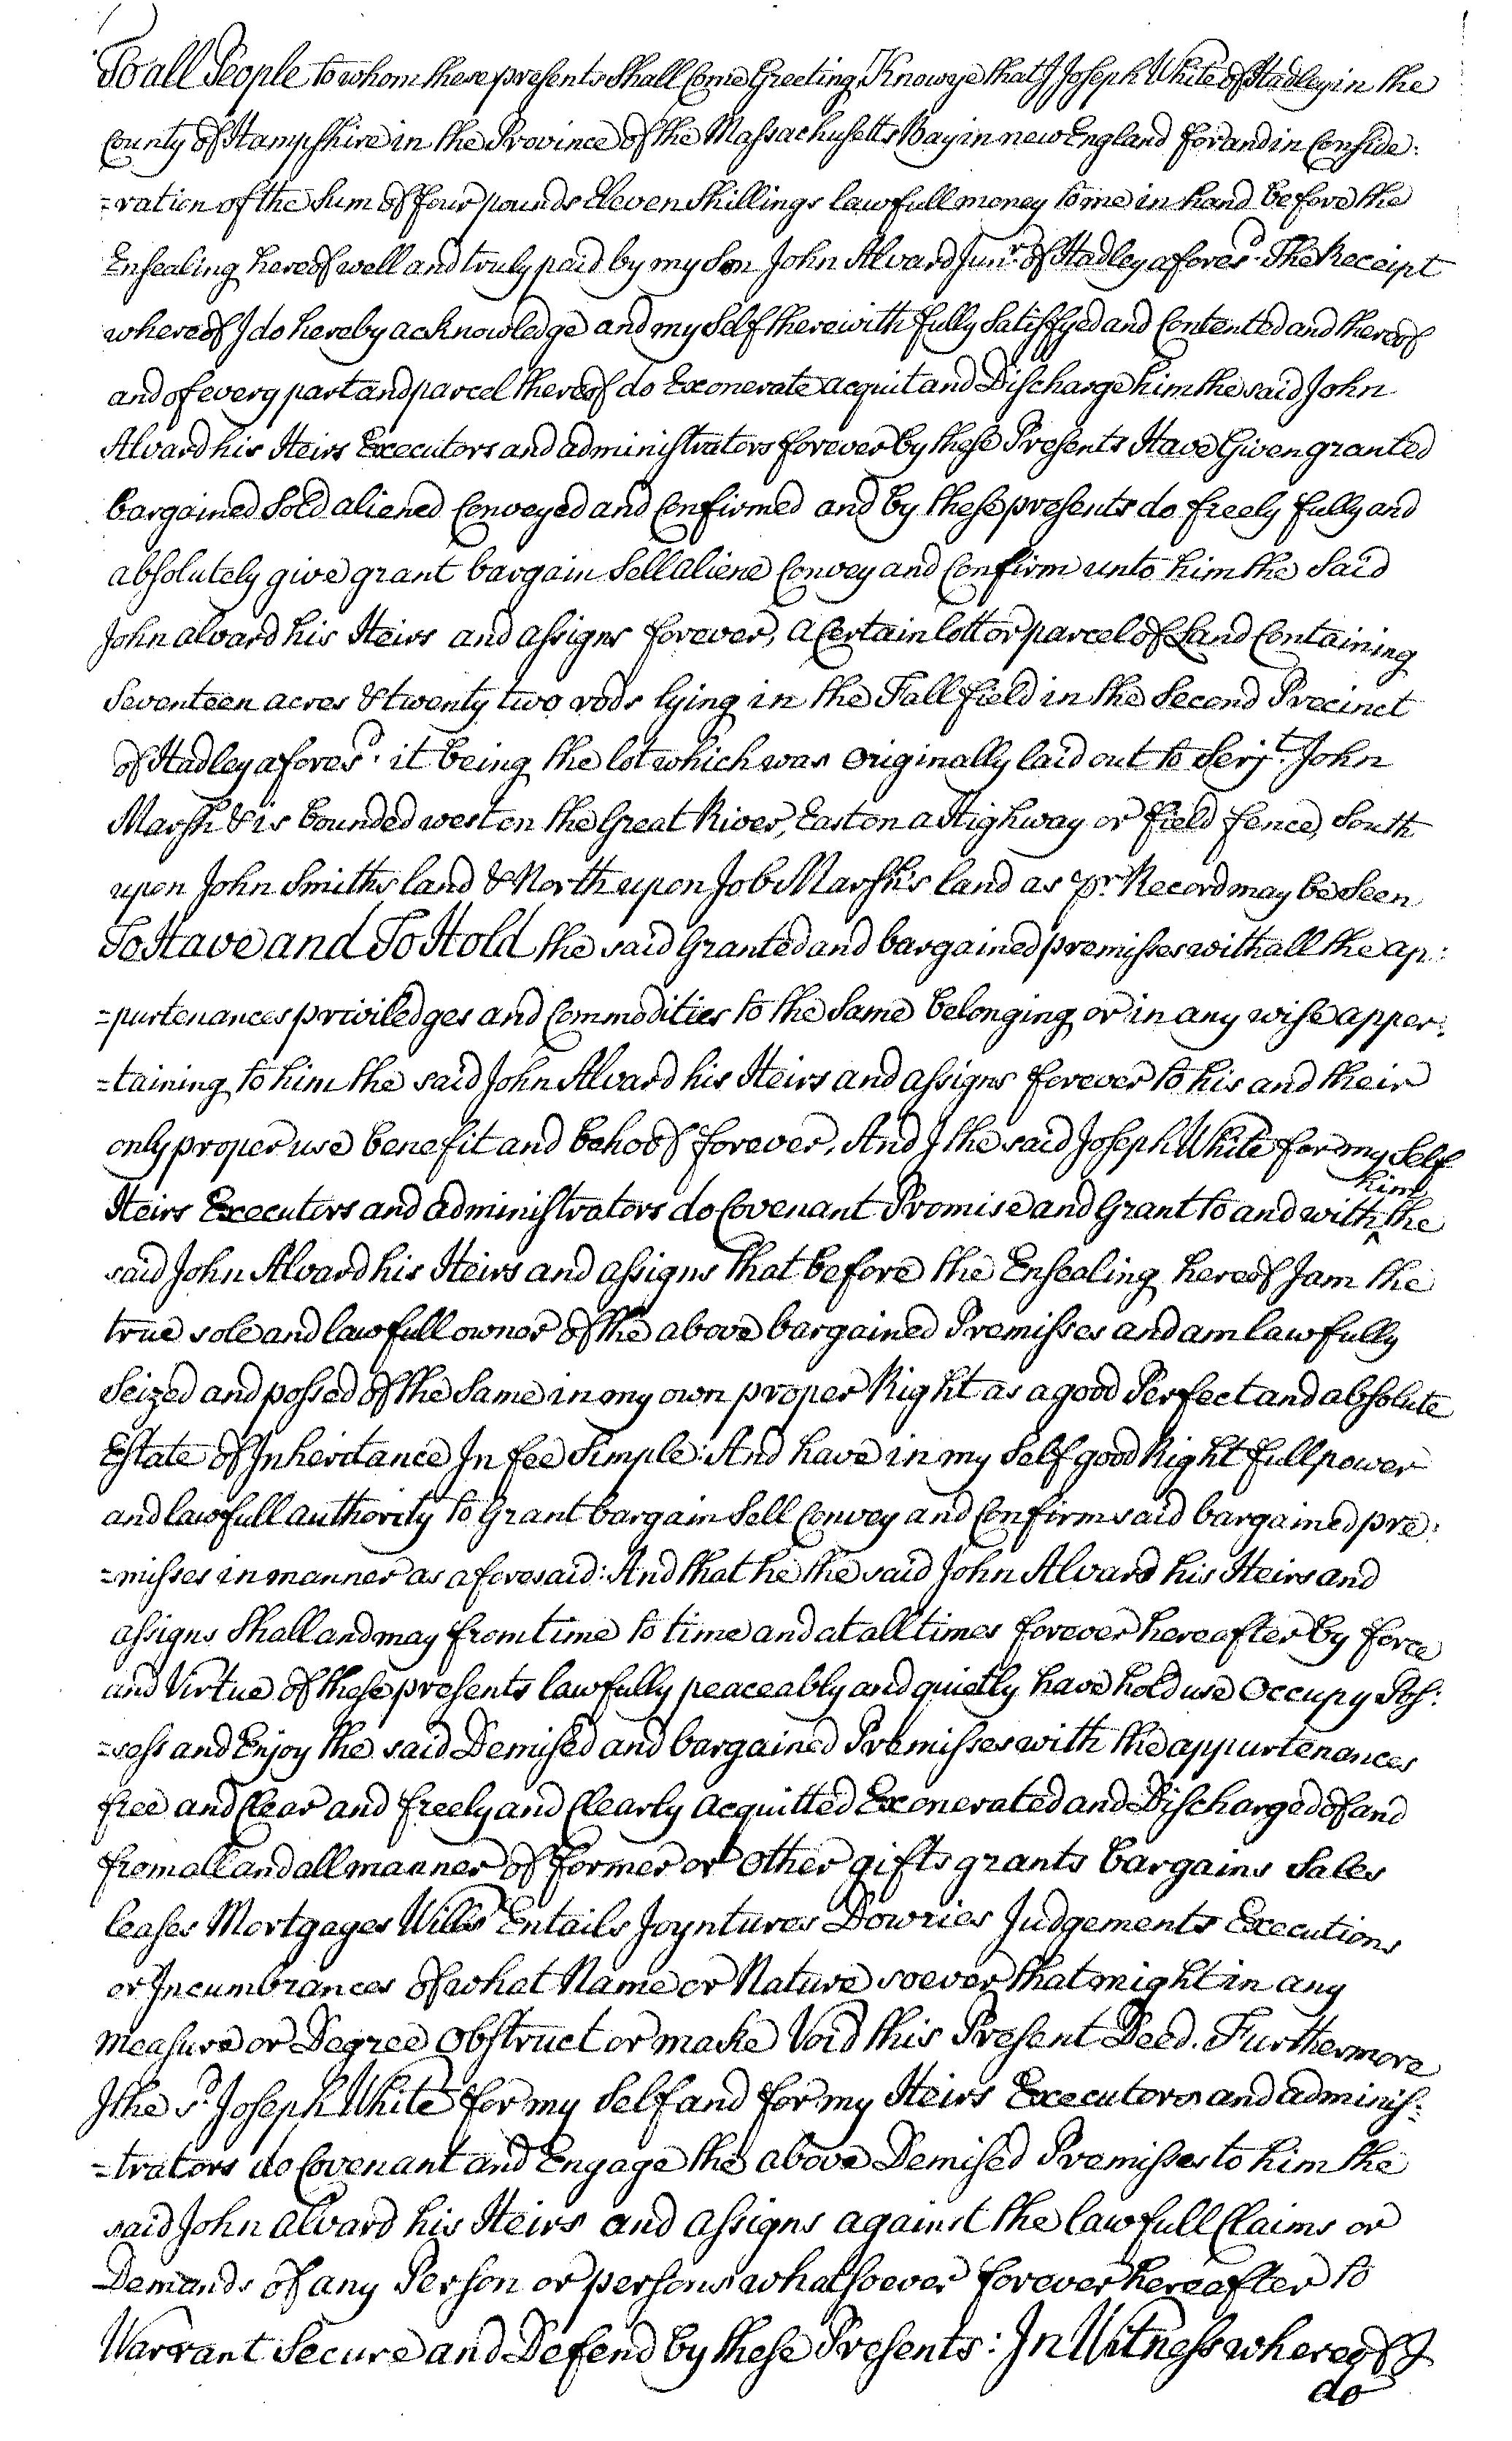 To all People to whom these presents Shall Come Greeting, Know ye that I Joseph White of Hadley in the
County of Hampshire in the Province of the Massachusetts Bay in new England for and in Conside:
=ration of the Sum of four pounds Eleven Shillings lawfull money to me in hand before the
Ensealing hereof well and truly paid by my Son John Alvard Junr. of Hadley afores.d The Receipt
whereof I do hereby acknowledge and my Self therewith fully Satisfyed and Contented and thereof
and of every part and parcel thereof do Exonerate acquit and Discharge him the said John
Alvard his Heirs Executors and administrators forever by these Presents Have Given granted
bargained Sold aliened Conveyed and Confirmed and by these presents do freely fully and
absolutely give grant bargain Sell aliene Convey and Confirm unto him the Said
John alvard his Heirs and assigns forever, a Certain lott or parcel of Land Containing
Seventeen acres & twenty two rods lying in the Fall field in the Second Precinct
of Hadley afores.d it being the lot which was Originally laid out to Serjt. John
Marsh & is bounded west on the Great River, East on a Highway or field fence, South
upon John Smiths land & North upon Job Marsh's land as pr. Record may be Seen
To Have and To Hold the said Granted and bargained premisses with all the ap:
=purtenances priviledges and Commodities to the Same belonging or in any wise apper:
=taining to him the said John Alvard his Heirs and assigns forever to his and their
only proper use benefit and behoof forever. And I the said Joseph White for my Self
Heirs Executors and administrators do Covenant Promise and Grant to and with ^him the
said John Alvard his Heirs and assigns that before the Ensealing hereof I am the
true sole and lawfull owner of the above bargained Premisses and am lawfully
Seized and possed of the Same in my own proper Right as a good Perfect and absolute
Estate of Inheritance In fee Simple: And have in my Self good Right full power
and lawfull authority to Grant bargain Sell Convey and Confirm said bargained pre:
=misses in manner as aforesaid: And that he the said John Alvard his Heirs and
assigns Shall and may from time to time and at all times forever hereafter by force
and Virtue of these presents lawfully peaceably and quietly have hold use Occupy Pos:
=sess and Enjoy the said Demised and bargained Premisses with the appurtenances
free and Clear and freely and Clearly acquitted Exonerated and Discharged of and
from all and all manner of former or other gifts grants bargains Sales
leases Mortgages Wills Entails Joyntures Dowries Judgements Executions
or Incumbrances of what Name or Nature soever that might in any
measure or Degree obstruct or make Void this Present Deed. Furthermore
I the s.d Joseph White for my Self and for my Heirs Executors and adminis:
=trators do Covenant and Engage the above Demised Premisses to him the
said John alvard his Heirs and assigns against the lawfull Claims or
Demands of any Person or persons whatsoever forever hereafter to
Warrant Secure and Defend by these Presents: In Witness whereof I
do